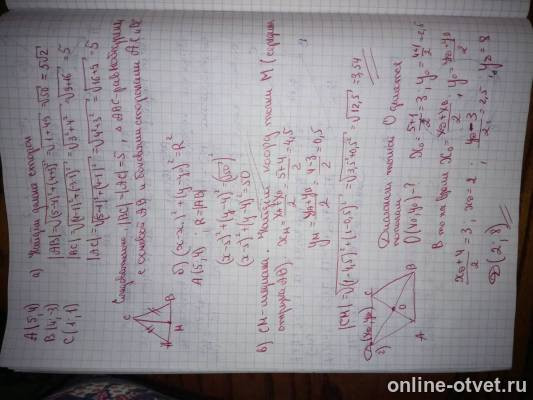 A(5;4)
B(4;-3)
C(1;1)
а) Найдём длины сторон
|AB|=√(5-4)²+(4+3)²=√1+49=√50=5√2
|BC|=√(4-1)²+(-3-1)²=√3²+4²=√9+16=5
|AC|=√(5-1)²+(4-1)²=√4²+3²=√16+9=5
Следовательно |BC|=|AC|=5, △ABC-равнобедрен
с основой AB и боковыми сторонами AC и BC
C
A
M
B
б) (x-x₀)²+(y-y₀)²=R²
A(5;4), R=|AB|
(x-5)²+(y-4)²=(√50)²
(x-5)²+(y-4)²=50
в) CM-медиана. Найдём коорд точки M (середин
отрезка AB).
xM=xA+xB/2=5+4/2=4,5
yM=yA+yB/2=4-3/2=0,5
|CM|=√(1-4,5)²+(1-0,5)²=√3,5²+0,5²=√12,5=3,54
г)
D(x₀;y₀)
C
O
A
B
Диагонали точкой O делятся
пополам
O(x₀;y₀)-?
x₀=5+1/2=3; y₀=4+1/2=2,5
В то же время x₀=xD+xB/2; y₀=yD+yB/2
xD+4/2=3; xD=2; yD-3/2=2,5; yD=8
D(2;8)
online-otvet.ru